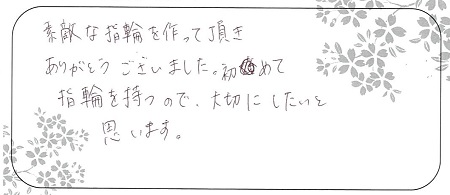 素敵な指輪を作って頂き
ありがとうございました。初めて
指輪を持つので、大切にしたいと
思います。